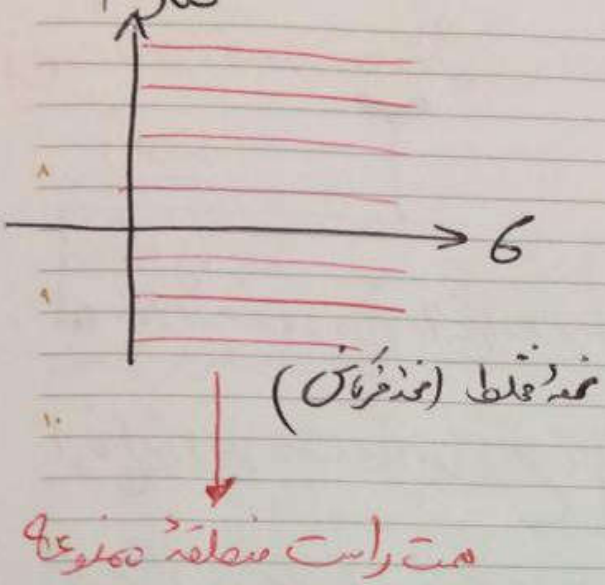 ۸
σ
۹
صفحهٔ مختلط (صفحه فرکانس)
۱۰
سمت راست منطقهٔ ممنوعه